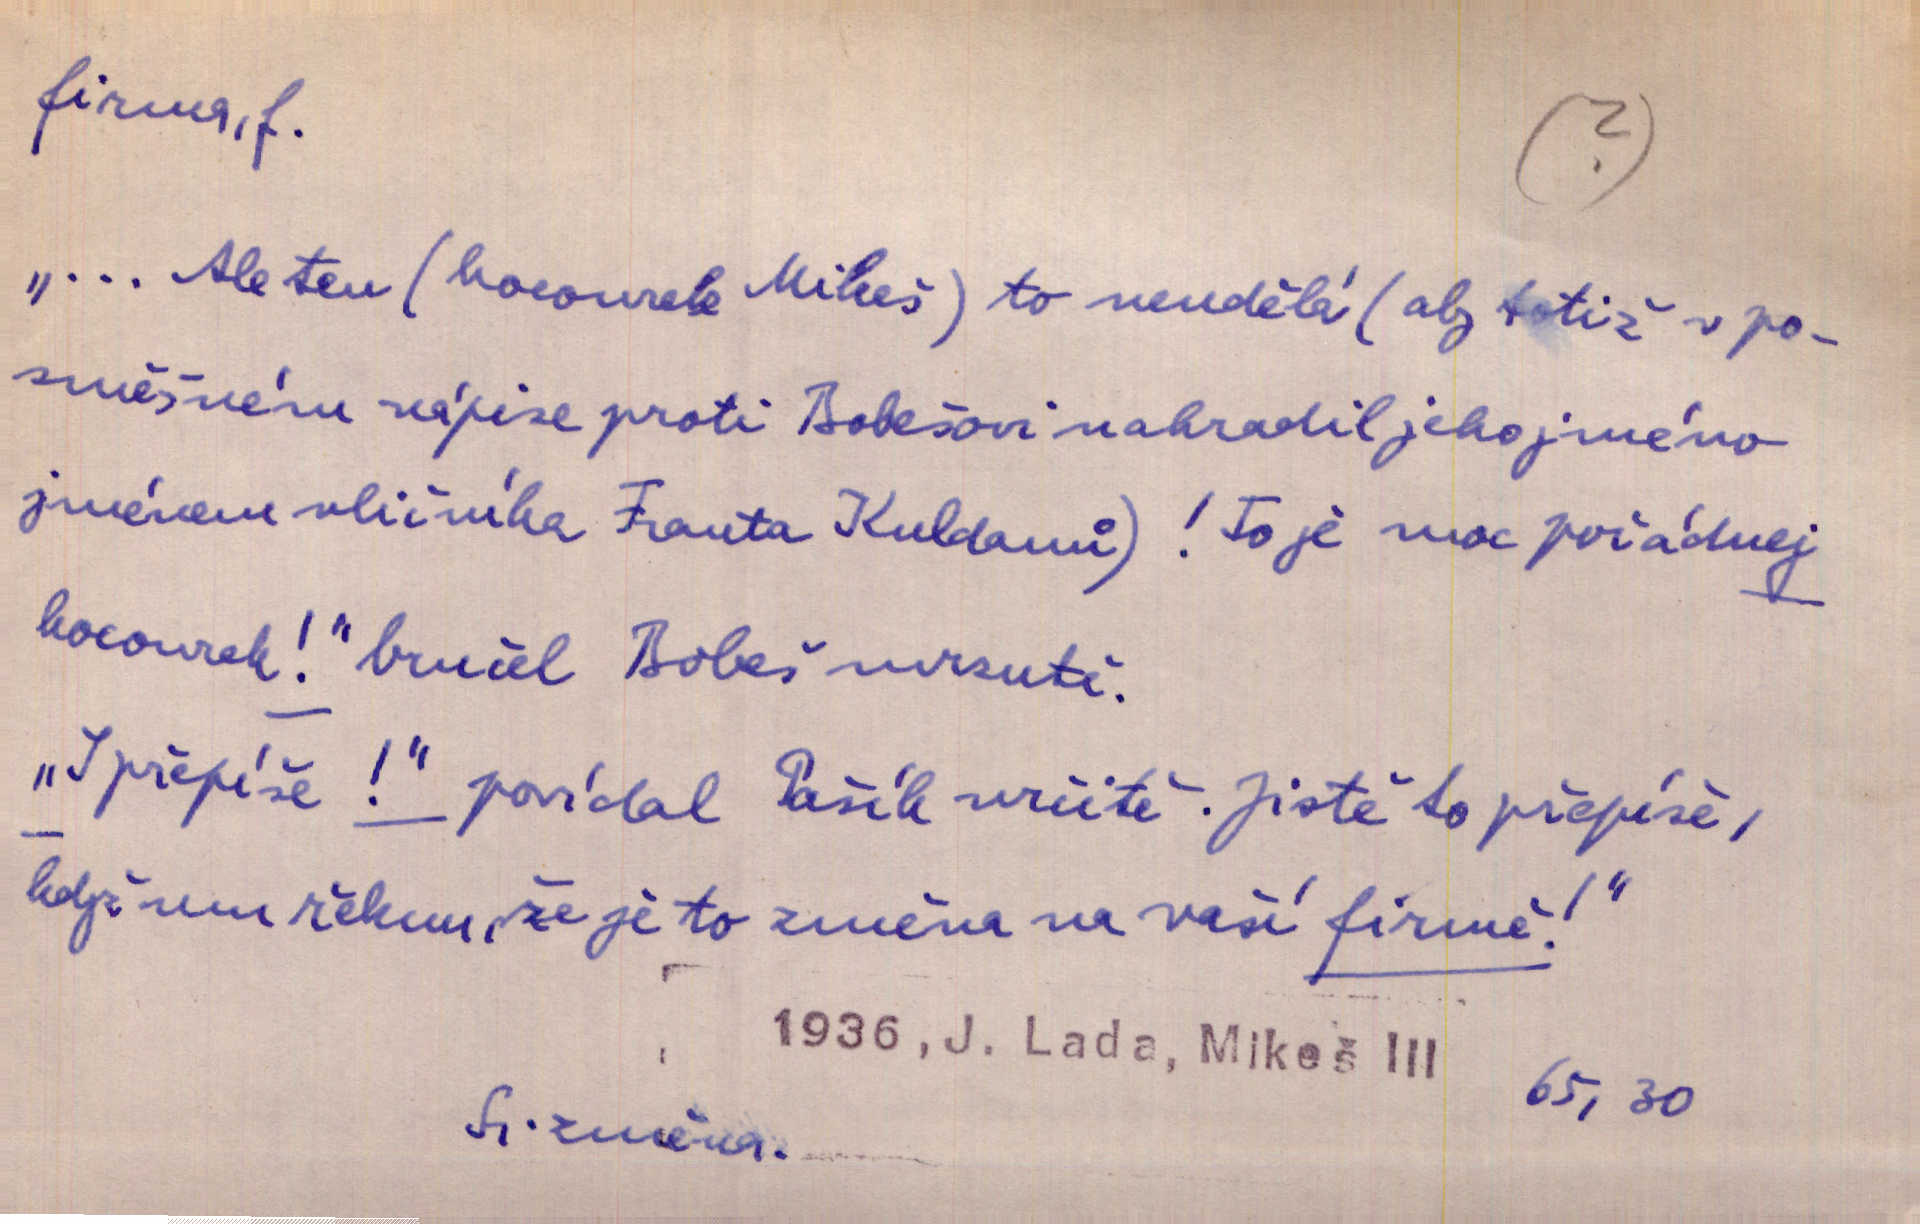 firma, f.
(?)
„... Ale ten (kocourek Mikeš) to neudělá (aby totiž v po-
směšném nápise proti Bobešovi nahradil jeho jméno
jménem uličníka Franta Kuldanů)! To je moc pořádnej
kocourek!“ bručel Bobeš mrzutě.
„I přepíše!“ povídal Pašík určitě. Jistě to přepíše,
když mu řeknu, že je to změna na vaší firmě!“
1936, J. Lada, Mikeš III
65, 30
Sr. změna.